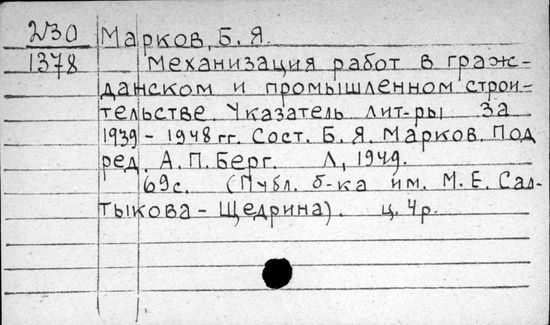 2V30 Марков, Б. Я.
1378 Механизация работ в граж-
данском и промышленном строи-
тельстве. Указатель лит-ры за
1939 - 1948 гг. Сост. Б. Я. Марков. Под
ред. А. П. Берг. Л., 1949.
69 с. (Публ. б-ка им. М. Е. Сал-
тыкова - Щедрина). ц. 4 р.